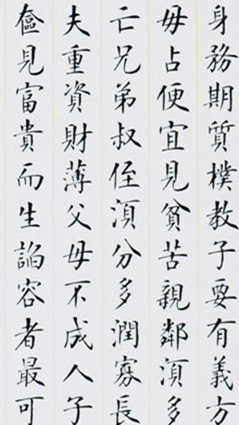 身務期質樸教子要有義方
毋占便宜見貧苦親鄰湏多
亡兄弟叔侄湏分多潤寡長
夫重資財薄父母不成人子
奩見富貴而生諂容者最可